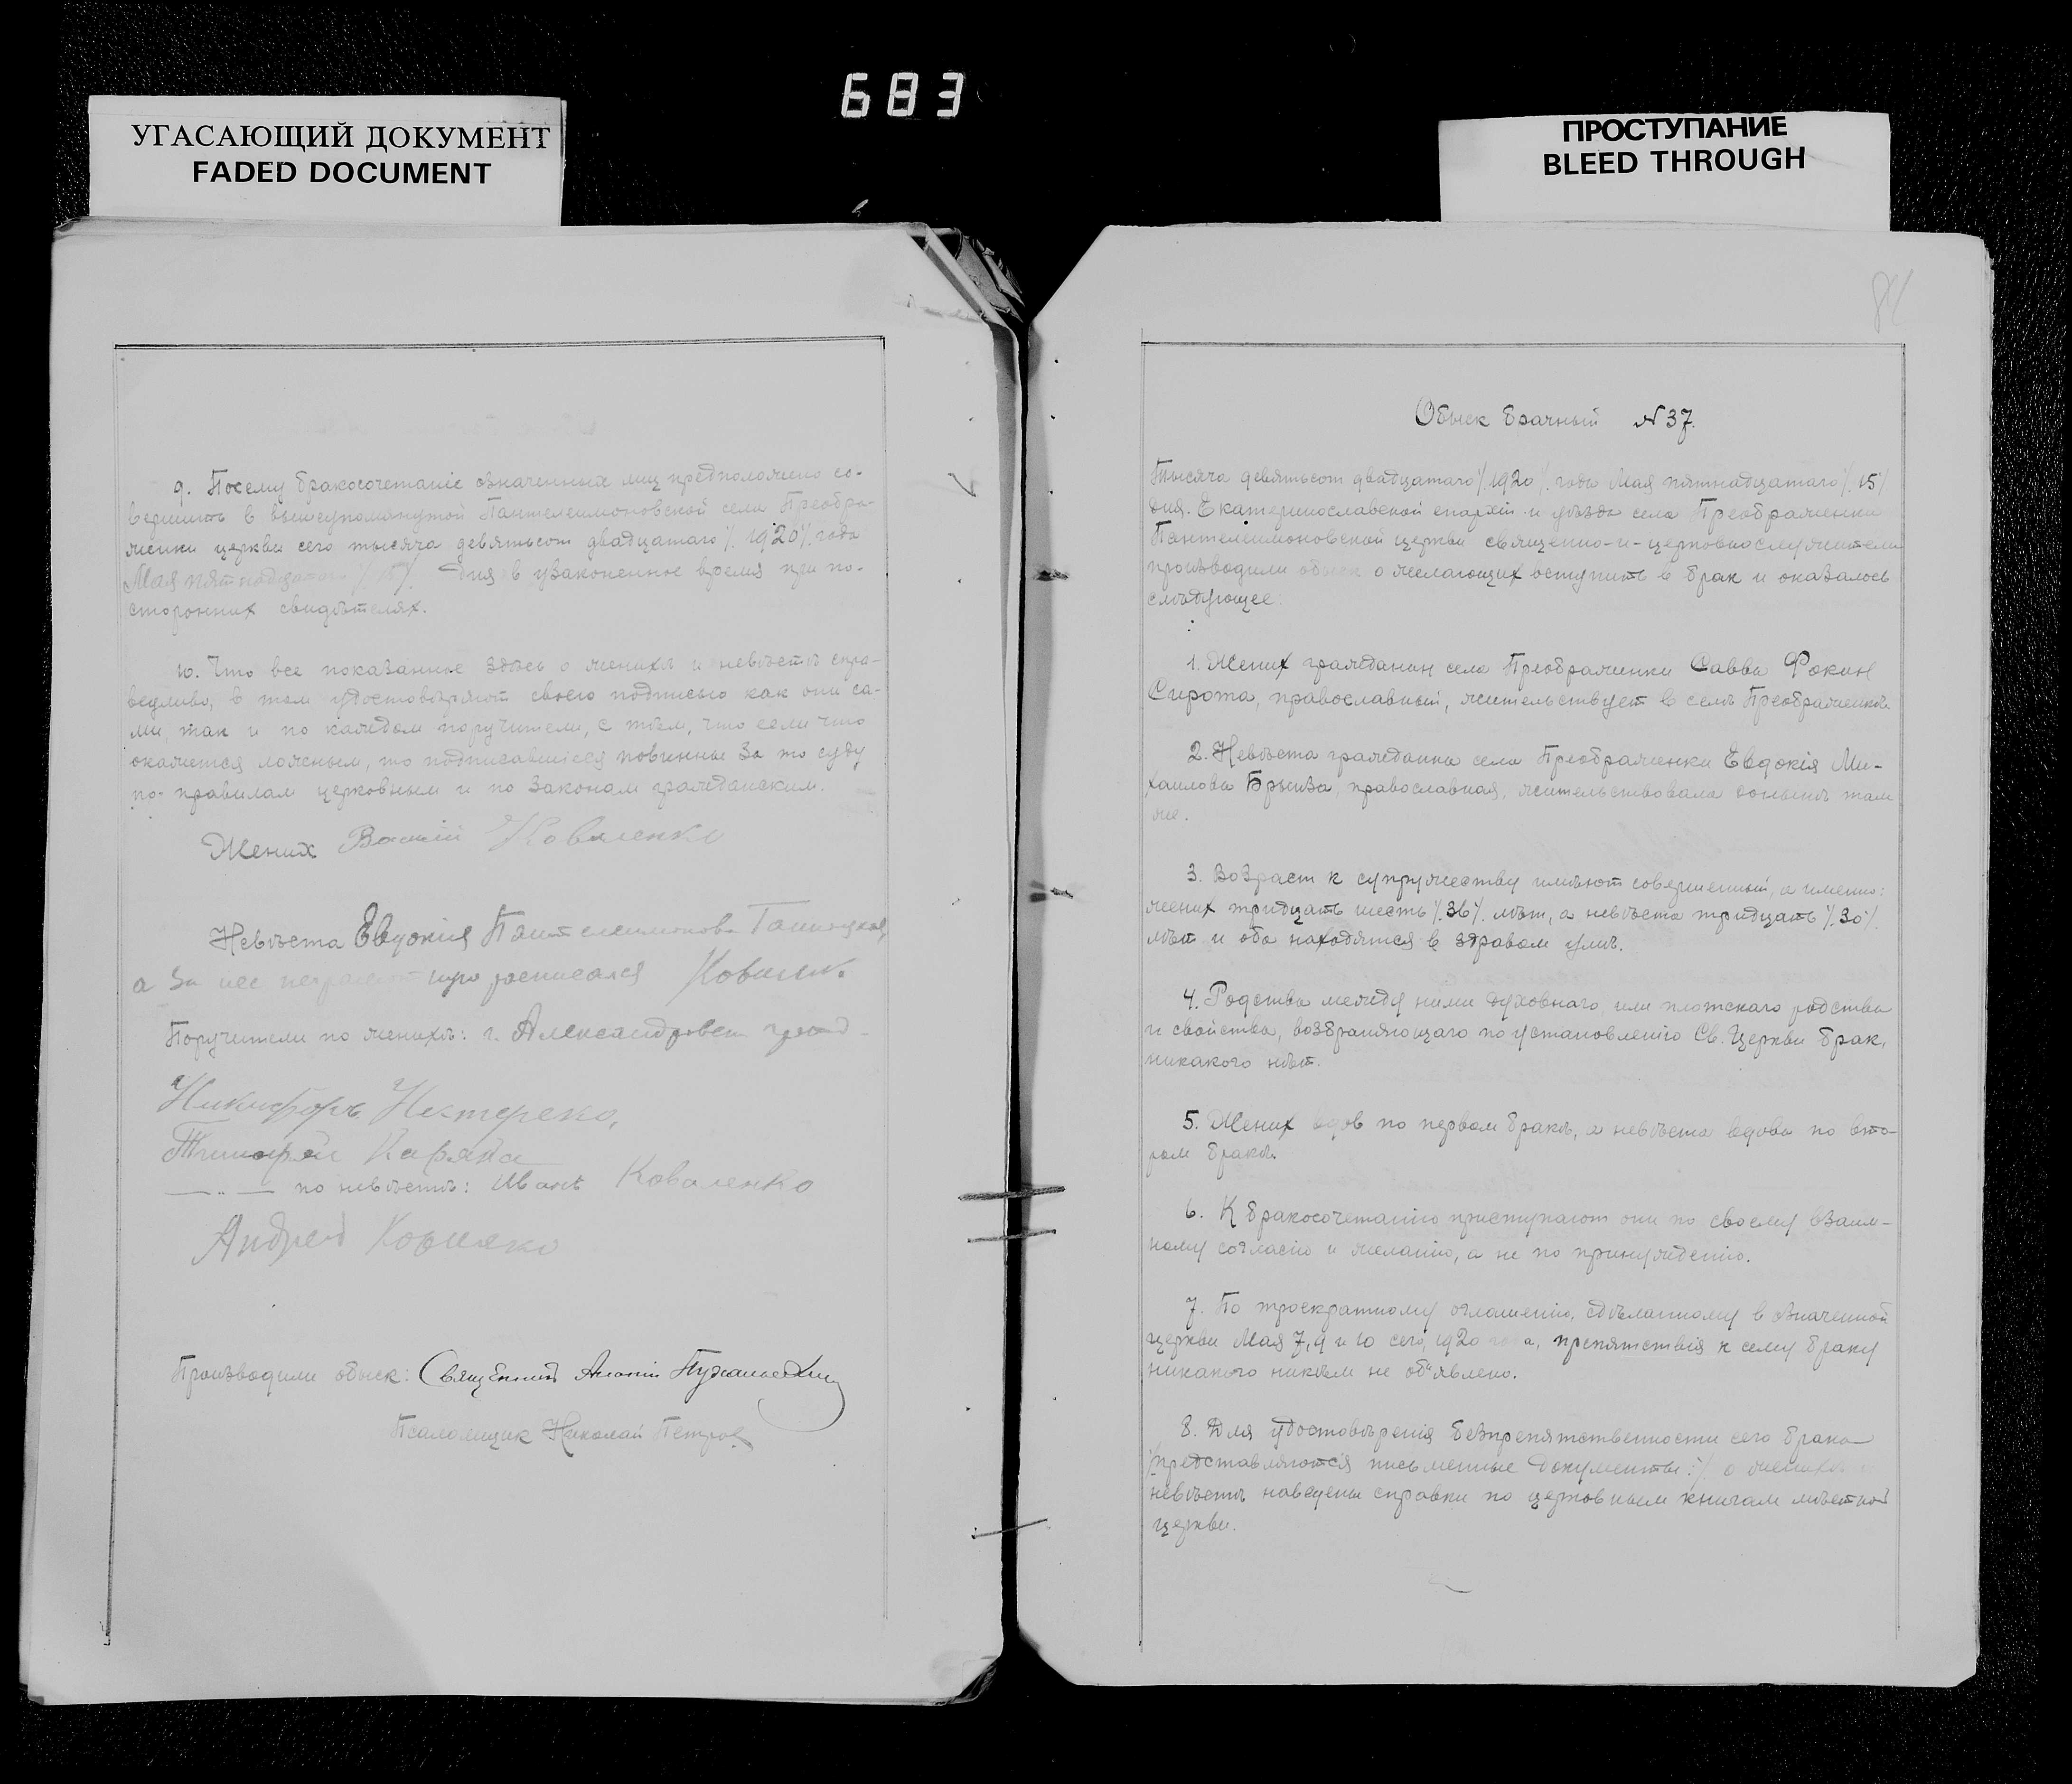 683
УГАСАЮЩИЙ ДОКУМЕНТ
FADED DOCUMENT
ПРОСТУПАНИЕ
BLEED THROUGH
9. Посему бракосочетаніе означенных лиц предположено со-
вершить в вышеупомянутой Пантелеимоновской села Преобра-
женки церкви сего тысяча девятьсот двадцатаго /. 1920 /. года
Мая пятнадцатаго /. 15 /. дня в узаконенное время при по-
сторонних свидѣтелях.
10. Что все показанное здѣсь о женихѣ и невѣстѣ спра-
ведливо, в том удостовѣряют своею подписью как они са-
ми, так и по каждом поручители, с тѣм, что если что
окажется ложным, то подписавшіеся повинны за то суду
по правилам церковным и по законам гражданским.
Жених Васілій Коваленко
Невѣста Евдокия Пантелеимонова
а за нее неграмотную расписался
Поручители по женихѣ: г. Александровск гражд.
Никифоръ Нестеренко,
Тимофей
—〃— по невѣстѣ: Иванъ Коваленко
Андрей
Производили обыск: Священник Антоній
Псаломщик Николай Петров
81
Обыск брачный № 37.
Тысяча девятьсот двадцатаго /. 1920 /. года Мая пятнадцатаго /. 15 /
дня. Екатеринославской епархіи и уѣзда села Преображенки
Пантелеимоновской церкви священно-и-церковнослужители
производили обыск о желающих вступить в брак и оказалось
слѣдующее:
1. Жених гражданин села Преображенки Савва Фокин
Сирота, православный, жительствует в селѣ Преображенкѣ.
2. Невѣста гражданка села Преображенки Евдокія Ми-
хаилова Брынза, православная, жительствовала донынѣ там
же.
3. Возраст к супружеству имѣют совершенный, а именно:
жених тридцать шесть /. 36 /. лѣт, а невѣста тридцать /. 30 /.
лѣт и оба находятся в здравом умѣ.
4. Родства между ними духовнаго или плотскаго родства
и свойства, возбраняющаго по установленію Св. Церкви брак,
никакого нѣт.
5. Жених вдов по первом бракѣ, а невѣста вдова по вто-
ром бракѣ.
6. К бракосочетанію приступают они по своему взаим-
ному согласію и желанію, а не по принужденію.
7. По троекратному оглашенію, сдѣланному в означенной
церкви Мая 7, 9 и 10 сего, 1920 года, препятствія к сему браку
никакого никѣм не об"явлено.
8. Для удостовѣренія безпрепятственности сего брака
/представляются письменные документы:/ о женихѣ и
невѣстѣ наведены справки по церковным книгам мѣстной
церкви.